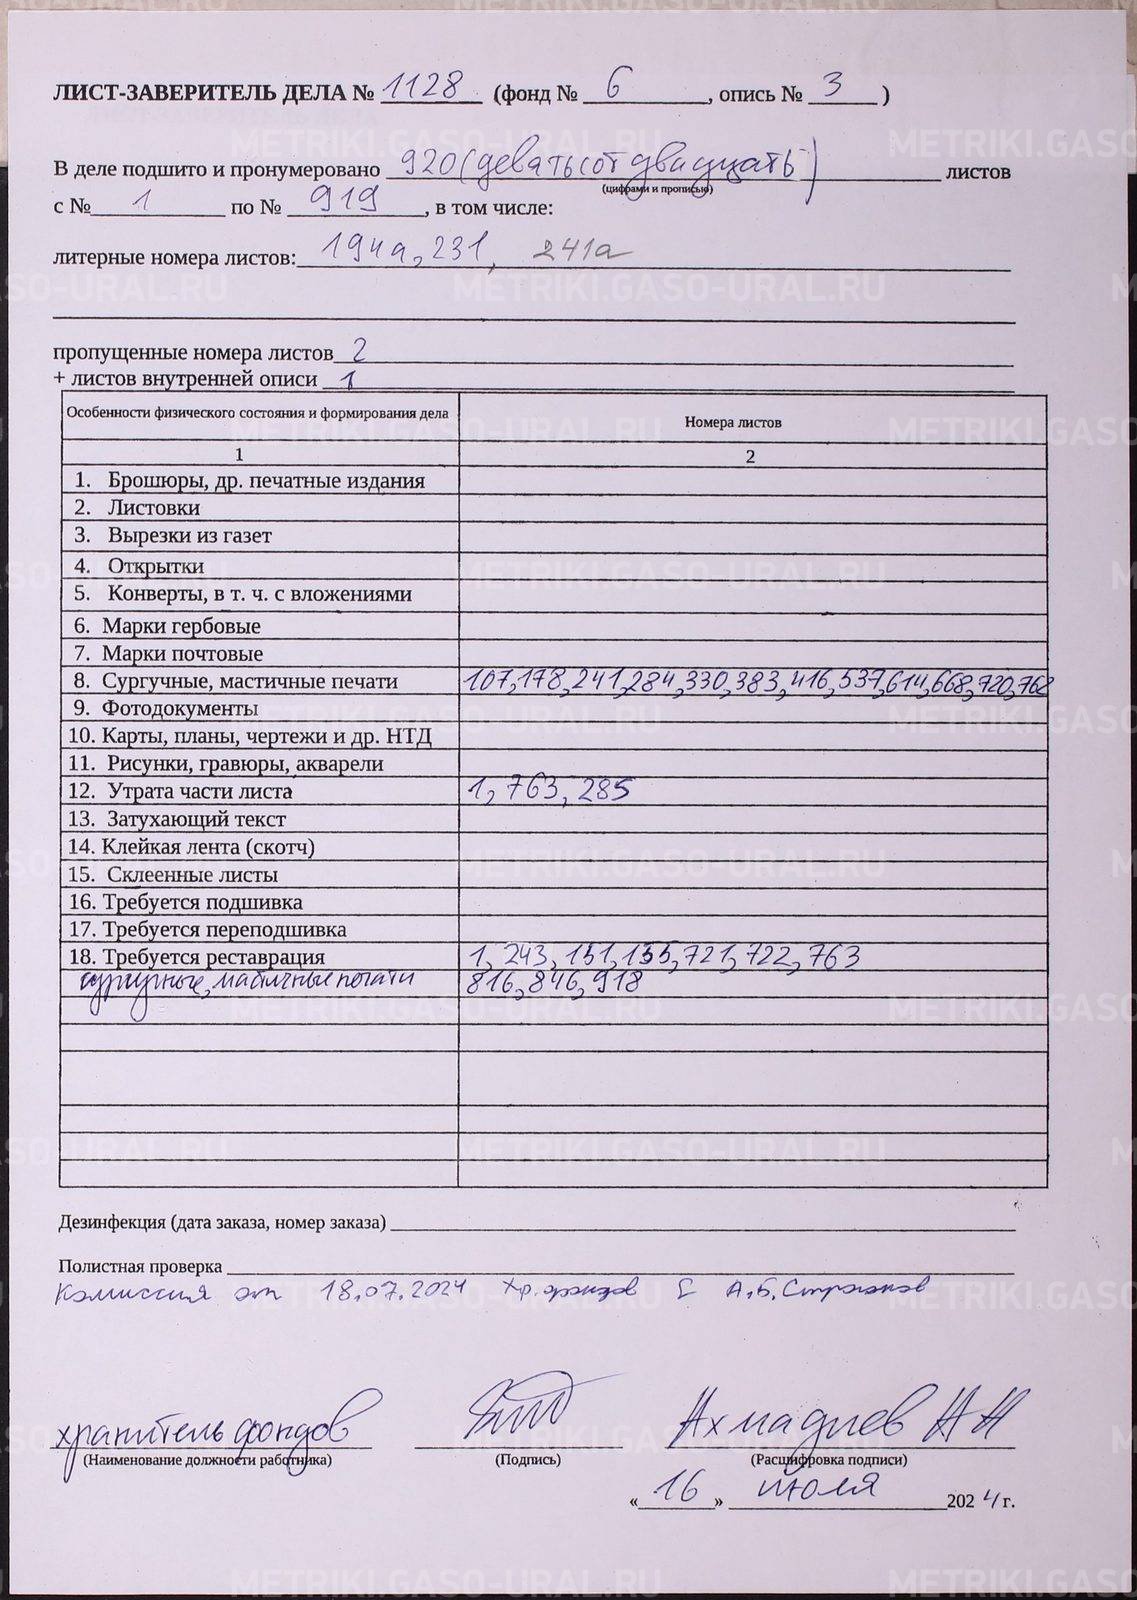 ЛИСТ-ЗАВЕРИТЕЛЬ ДЕЛА № 1128 (фонд № 6, опись № 3)
В деле подшито и пронумеровано 920 (девятьсот двадцать) листов
(цифрами и прописью)
с № 1 по № 919, в том числе:
литерные номера листов: 194а, 231, 241а
пропущенные номера листов 2
+ листов внутренней описи 1
Особенности физического состояния и формирования дела Номера листов
1 2
1. Брошюры, др. печатные издания
2. Листовки
3. Вырезки из газет
4. Открытки
5. Конверты, в т. ч. с вложениями
6. Марки гербовые
7. Марки почтовые
8. Сургучные, мастичные печати 107, 178, 241, 284, 330, 383, 416, 537, 614, 668, 720, 762
9. Фотодокументы
10. Карты, планы, чертежи и др. НТД
11. Рисунки, гравюры, акварели
12. Утрата части листа 1, 763, 285
13. Затухающий текст
14. Клейкая лента (скотч)
15. Склеенные листы
16. Требуется подшивка
17. Требуется переподшивка
18. Требуется реставрация 1, 243, 151, 155, 721, 722, 763
сургучные, мастичные печати 816, 846, 918
Дезинфекция (дата заказа, номер заказа)
Полистная проверка
Комиссия от 18.07.2024 Хр. фондов А.Б.
хранитель фондов Ахмадиев
(Наименование должности работника) (Подпись) (Расшифровка подписи)
« 16 » июля 2024 г.
METRIKI.GASO-URAL.RU